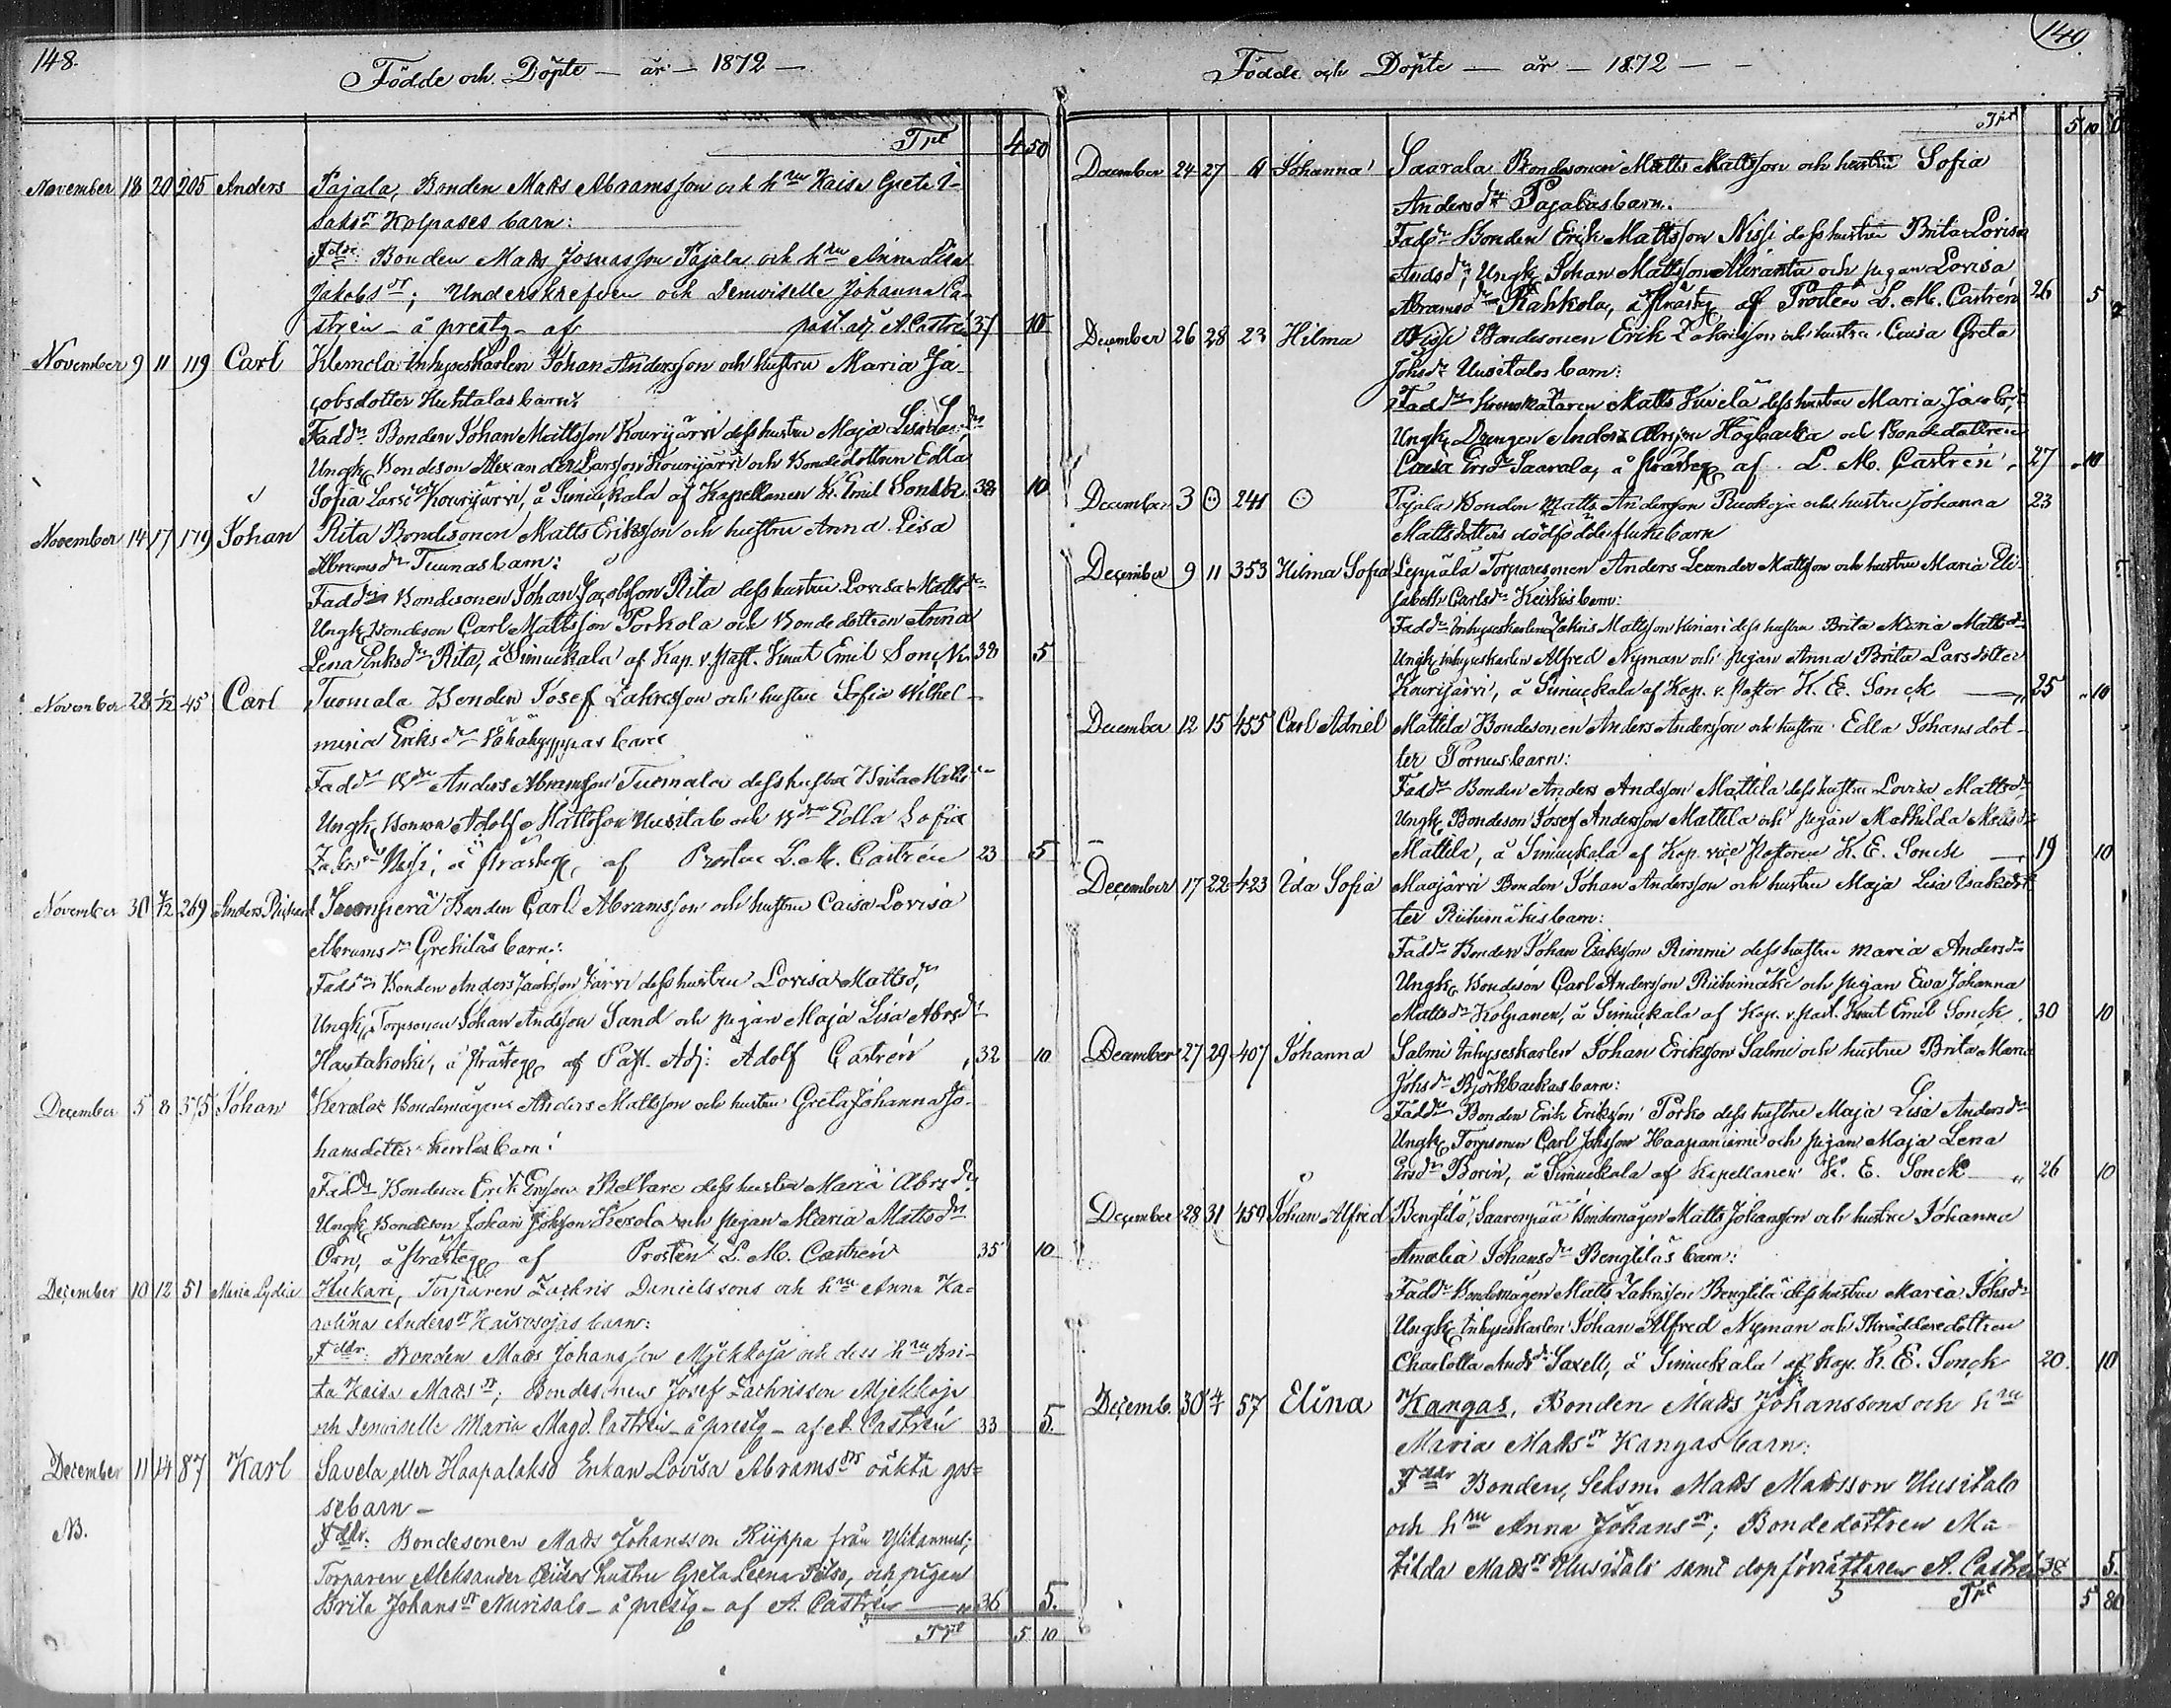 148.
Födde och Döpte — år — 1872 —
Trpt 4 50
November 18 20 205 Anders Pajala, Bonden Matts Abramsson och hru Kaisa Greta I-
saksdr Kolpases barn:
Fddr: Bonden Matts Josuasson Pajala och hru Anna Lisa
Jakobsdr; Underskrefven och Demoiselle Johanna Ca-
strén - å prestg - af past. adj. A. Castrén 37 10
November 9 11 119 Carl Klemola Inhyseskarlen Johan Andersson och hustru Maria Ja-
cobsdotter Huhtalas barn:
Faddr Bonden Johan Mattsson Kourijärvi dess hustru Maja Lisa
Ungk. Bondeson Alexander Larsson Kourijärvi och Bondedottren Edla
Sofia Larsdr Kourijärvi, å Simuckala af Kapellanen K. Emil Sonck 38 10
November 14 17 179 Johan Rita Bondesonen Matts Eriksson och hustru Anna Lisa
Abramsdr Tuunas barn:
Faddr Bondesonen Johan Jacobsson Rita dess hustru Lovisa Mattsdr
Ungk. Bondeson Carl Mattsson Porkola och Bondedottren Anna
Lena Eriksdr Rita, å Simuckala af Kap. v. past. Knut Emil Sonck 38 5
November 28 1/12 45 Carl Tuomala Bonden Josef Zakrisson och hustru Sofia Wilhel-
mina Eriksdr barn
Faddr Bdn Anders Abramsson Tuomala dess hustru Brita Mattsdr
Ungk. Bonson Adolf Mattsson Uusitalo och Bdr Edla Sofia
Zakrsdr Nissi, å prästeg. af Prosten L. M. Castrén 23 5
November 30 4/12 269 Anders Richard Bonden Carl Abramsson och hustru Caisa Lovisa
Abramsdr Grekilas barn:
Faddr Bonden Anders Jacobsson Järvi dess hustru Lovisa Mattsd.
Ungk. Torpsonen Johan Andsson Sand och pigan Maja Lisa Abrsdr
Hautakoski, å prästeg. af Past. Adj: Adolf Castrén 32 10
December 5 8 375 Johan Kerola Bondemågen Anders Mattsson och hustru Greta Johanna Jo-
hansdotter Kerolas barn:
Faddr Bondeson Erik Ersson dess hustru Maria Abrsdr
Ungk. Bondeson Johan Johsson Kerola och pigan Maria Mattsdr
Orn, å prästeg. af Prosten L. M. Castrén 35 10
December 10 12 51 Maria Lydia Hukari, Torparen Zachris Danielssons och hru Anna Ka-
rolina Andersdr Kaurosojas barn:
Fddr: Bonden Matts Johansson och dess hru Bri-
ta Kaisa Mattsdr; Bondesonen Josef Zachrisson
och Demoiselle Maria Magd. Castrén - å prestg - af A. Castrén 33 5.
December 11 14 87 Karl Savela eller Haapalakso Enkan Lovisa Abramsdrs oäkta gos=
sebarn -
NB. Fddr: Bondesonen Matts Johansson Riippa från Ylikannus;
Torparen Aleksander hustru Greta Leena, och pigan
Brita Johansdr Nurisalo - å prestg - af A. Castrén 36 5.
Trpt 5 10
149
Födde och Döpte — år — 1872 — -
Trpt 5 10
December 24 27 Johanna Saarala Bondesonen Matts Mattsson och hustru Sofia
Andersdr Pajalas barn.
Faddr Bonden Erik Mattsson Nissi dess hustru Brita Lovisa
Andsdr, Ungk. Johan Mattsson och pigan Lovisa
Abramsdr Rahkola, å prästg. af Prosten L. M. Castrén 26 5
December 26 28 23 Hilma Nissi Bondesonen Erik Zakrisson och hustru Caisa Greta
Johsdr Uusitalos barn:
Faddr Matts dess hustru Maria Jacobsdr
Ungk. Drengen Anders Abrsson Högbacka och Bondedottren
Caisa Ersdr Saarala, å prästeg. af L. M. Castrén 27 10
December 3 ⊙ 241 ⊙ Pajala Bonden Matts Andersson och hustru Johanna 23
Mattsdotters dödfödde flickebarn
December 9 11 353 Hilma Sofia Leppälä Torparesonen Anders Leander Mattsson och hustru Maria Eli-
sabeth Carlsdr Keiskis barn:
Faddr Inhyseskarlen Zakris Mattsson dess hustru Brita Maria Mattsdr
Ungk. Inhyseskarlen Alfred Nyman och pigan Anna Brita Larsdotter
Kourijärvi, å Simuckala af Kap. v. Pastor K. E. Sonck — " 25 10
December 12 15 455 Carl Adriel Mattila Bondesonen Anders Andersson och hustru Edla Johansdot-
ter Pornus barn:
Faddr Bonden Anders Andsson Mattila dess hustru Lovisa Mattsdr
Ungk. Bondeson Josef Andersson Mattila och pigan Mathilda Mattsdr
Mattila, å Simuckala af Kap. vice Pastoren K. E. Sonck — " 19 10
December 17 22 423 Ida Sofia Maojärvi Bonden Johan Andersson och hustru Maja Lisa Isaksdot-
ter Riihimäkis barn:
Faddr Bonden Johan Eriksson Rimmi dess hustru Maria Andersdr
Ungk. Bondeson Carl Andersson Riihimäki och pigan Ewa Johanna
Mattsdr Kolpanen, å Simuckala af Kap. v. past. Knut Emil Sonck. 30 10
December 27 29 407 Johanna Salmi Inhyseskarlen Johan Eriksson Salmi och hustru Brita Maria
Johsdr Björkbackas barn:
Faddr Bonden Erik Eriksson Porko dess hustru Maja Lisa Andersdr
Ungk. Torpsonen Carl Johsson Haapaniemi och pigan Maja Lena
Ersdr Borin, å Simuckala af Kapellanen K. E. Sonck — " 26 10
December 28 31 459 Johan Alfred Bengtilä, Saarenpää Bondemågen Matts Johansson och hustru Johanna
Amalia Johansdr Bengtiläs barn:
Faddr Bondemågen Matts Zakrisson Bengtilä dess hustru Maria Johsdr
Ungk. Inhyseskarlen Johan Alfred Nyman och Skräddaredottren
Charlotta Andsdr Saxell, å Simuckala af Kap. K. E. Sonck 20 10
Decemb. 30 4/1 57 Elina Kangas, Bonden Matts Johanssons och hru
Maria Mattsdr Kangas barn:
Fddr Bonden, Seksm. Matts Mattsson Uusitalo
och hru Anna Johansdr; Bondedottren Ma-
tilda Mattsdr Uusitalo samt dopförrättaren A. Castrén 38 5.
Trpt 5 80